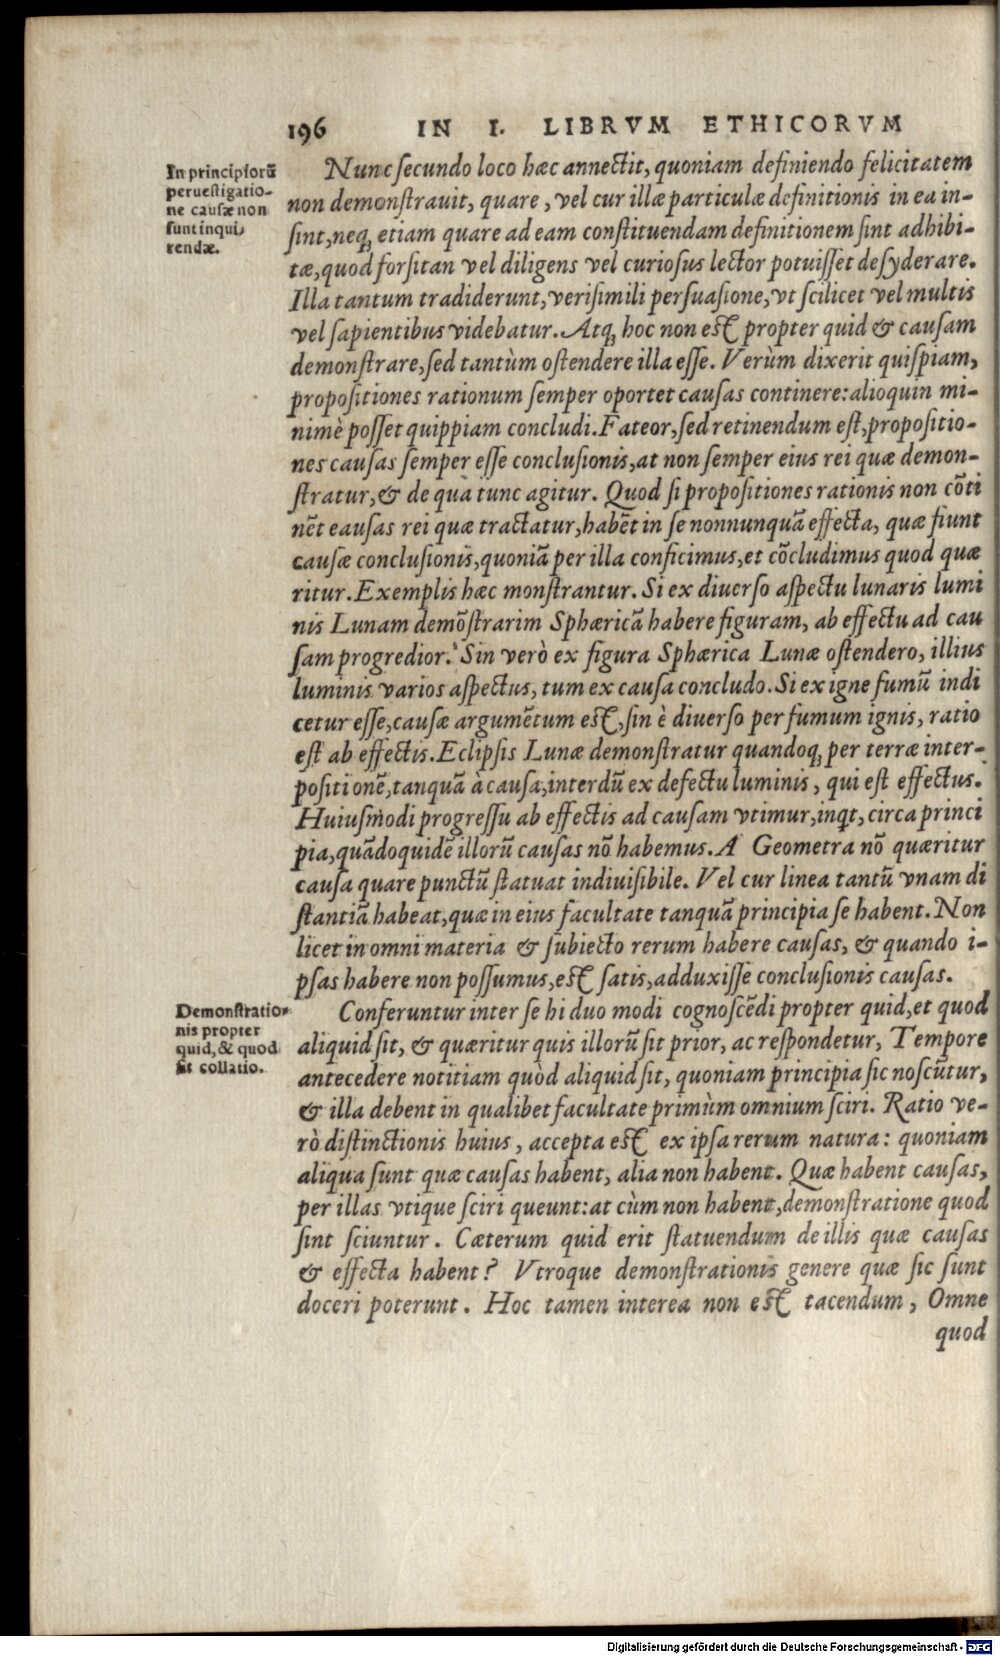 196 IN I. LIBRVM ETHICORVM
In principiorū
peruestigatio-
ne causæ non
sunt inqui-
rendæ.
Nunc secundo loco hæc annectit, quoniam definiendo felicitatem
non demonstrauit, quare, vel cur illæ particulæ definitionis in ea in-
sint, neq; etiam quare ad eam constituendam definitionem sint adhibi-
tæ, quod forsitan vel diligens vel curiosus lector potuisset desyderare.
Illa tantum tradiderunt, verisimili persuasione, vt scilicet vel multis
vel sapientibus videbatur. Atq; hoc non est propter quid & causam
demonstrare, sed tantùm ostendere illa esse. Verùm dixerit quispiam,
propositiones rationum semper oportet causas continere: alioquin mi-
nimè posset quippiam concludi. Fateor, sed retinendum est, propositio-
nes causas semper esse conclusionis, at non semper eius rei quæ demon-
stratur, & de qua tunc agitur. Quod si propositiones rationis non cōti
nēt eausas rei quæ tractatur, habēt in se nonnunquā effecta, quæ fiunt
causæ conclusionis, quoniā per illa conficimus, et cōcludimus quod quæ
ritur. Exemplis hæc monstrantur. Si ex diuerso aspectu lunaris lumi
nis Lunam demōstrarim Sphæricā habere figuram, ab effectu ad cau
sam progredior. Sin verò ex figura Sphærica Lunæ ostendero, illius
luminis varios aspectus, tum ex causa concludo. Si ex igne fumū indi
cetur esse, causæ argumētum est, sin è diuerso per fumum ignis, ratio
est ab effectis. Eclipsis Lunæ demonstratur quandoq; per terræ inter-
positionē, tanquā à causa, interdū ex defectu luminis, qui est effectus.
Huiusmodi progressu ab effectis ad causam vtimur, inqt, circa princi
pia, quādoquidē illorū causas nō habemus. A Geometra nō quæritur
causa quare punctū statuat indiuisibile. Vel cur linea tantū vnam di
stantiā habeat, quæ in eius facultate tanquā principia se habent. Non
licet in omni materia & subiecto rerum habere causas, & quando i-
psas habere non possumus, est satis, adduxisse conclusionis causas.
Demonstratio-
nis propter
quid, & quod
sit collatio.
Conferuntur inter se hi duo modi cognoscēdi propter quid, et quod
aliquid sit, & quæritur quis illorū sit prior, ac respondetur, Tempore
antecedere notitiam quòd aliquid sit, quoniam principia sic noscūtur,
& illa debent in qualibet facultate primùm omnium sciri. Ratio ve-
rò distinctionis huius, accepta est ex ipsa rerum natura: quoniam
aliqua sunt quæ causas habent, alia non habent. Quæ habent causas,
per illas vtique sciri queunt: at cùm non habent, demonstratione quod
sint sciuntur. Cæterum quid erit statuendum de illis quæ causas
& effecta habent? Vtroque demonstrationis genere quæ sic sunt
doceri poterunt. Hoc tamen interea non est tacendum, Omne
quod
Digitalisierung gefördert durch die Deutsche Forschungsgemeinschaft - DFG